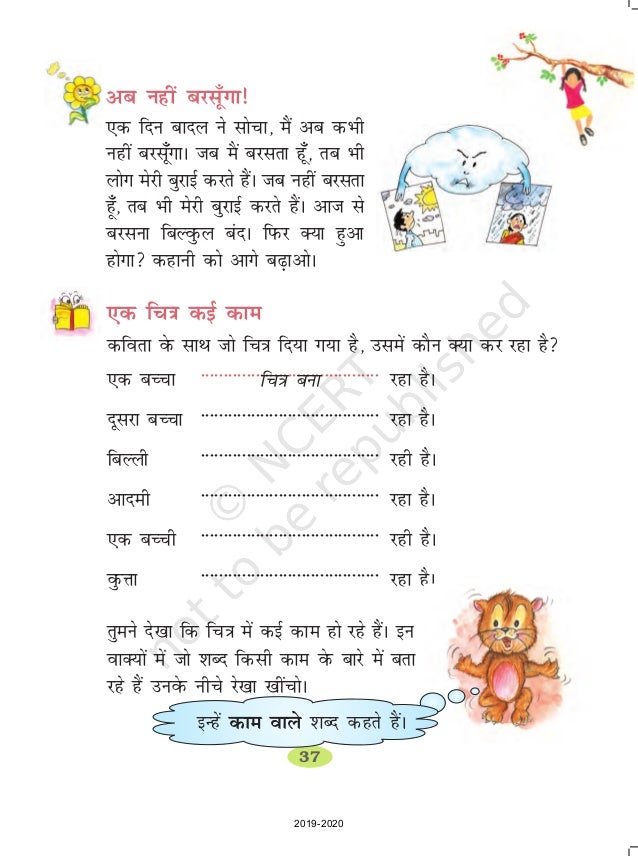 अब नहीं बरसूँगा!
एक दिन बादल ने सोचा, मैं अब कभी
नहीं बरसूँगा। जब मैं बरसता हूँ, तब भी
लोग मेरी बुराई करते हैं। जब नहीं बरसता
हूँ, तब भी मेरी बुराई करते हैं। आज से
बरसना बिल्कुल बंद। फिर क्या हुआ
होगा? कहानी को आगे बढ़ाओ।
एक चित्र कई काम
कविता के साथ जो चित्र दिया गया है, उसमें कौन क्या कर रहा है?
एक बच्चा ........ चित्र बना ........ रहा है।
दूसरा बच्चा ........................ रहा है।
बिल्ली ........................ रही है।
आदमी ........................ रहा है।
एक बच्ची ........................ रही है।
कुत्ता ........................ रहा है।
तुमने देखा कि चित्र में कई काम हो रहे हैं। इन
वाक्यों में जो शब्द किसी काम के बारे में बता
रहे हैं उनके नीचे रेखा खींचो।
इन्हें काम वाले शब्द कहते हैं।
37
2019-2020
© NCERT
not to be republished